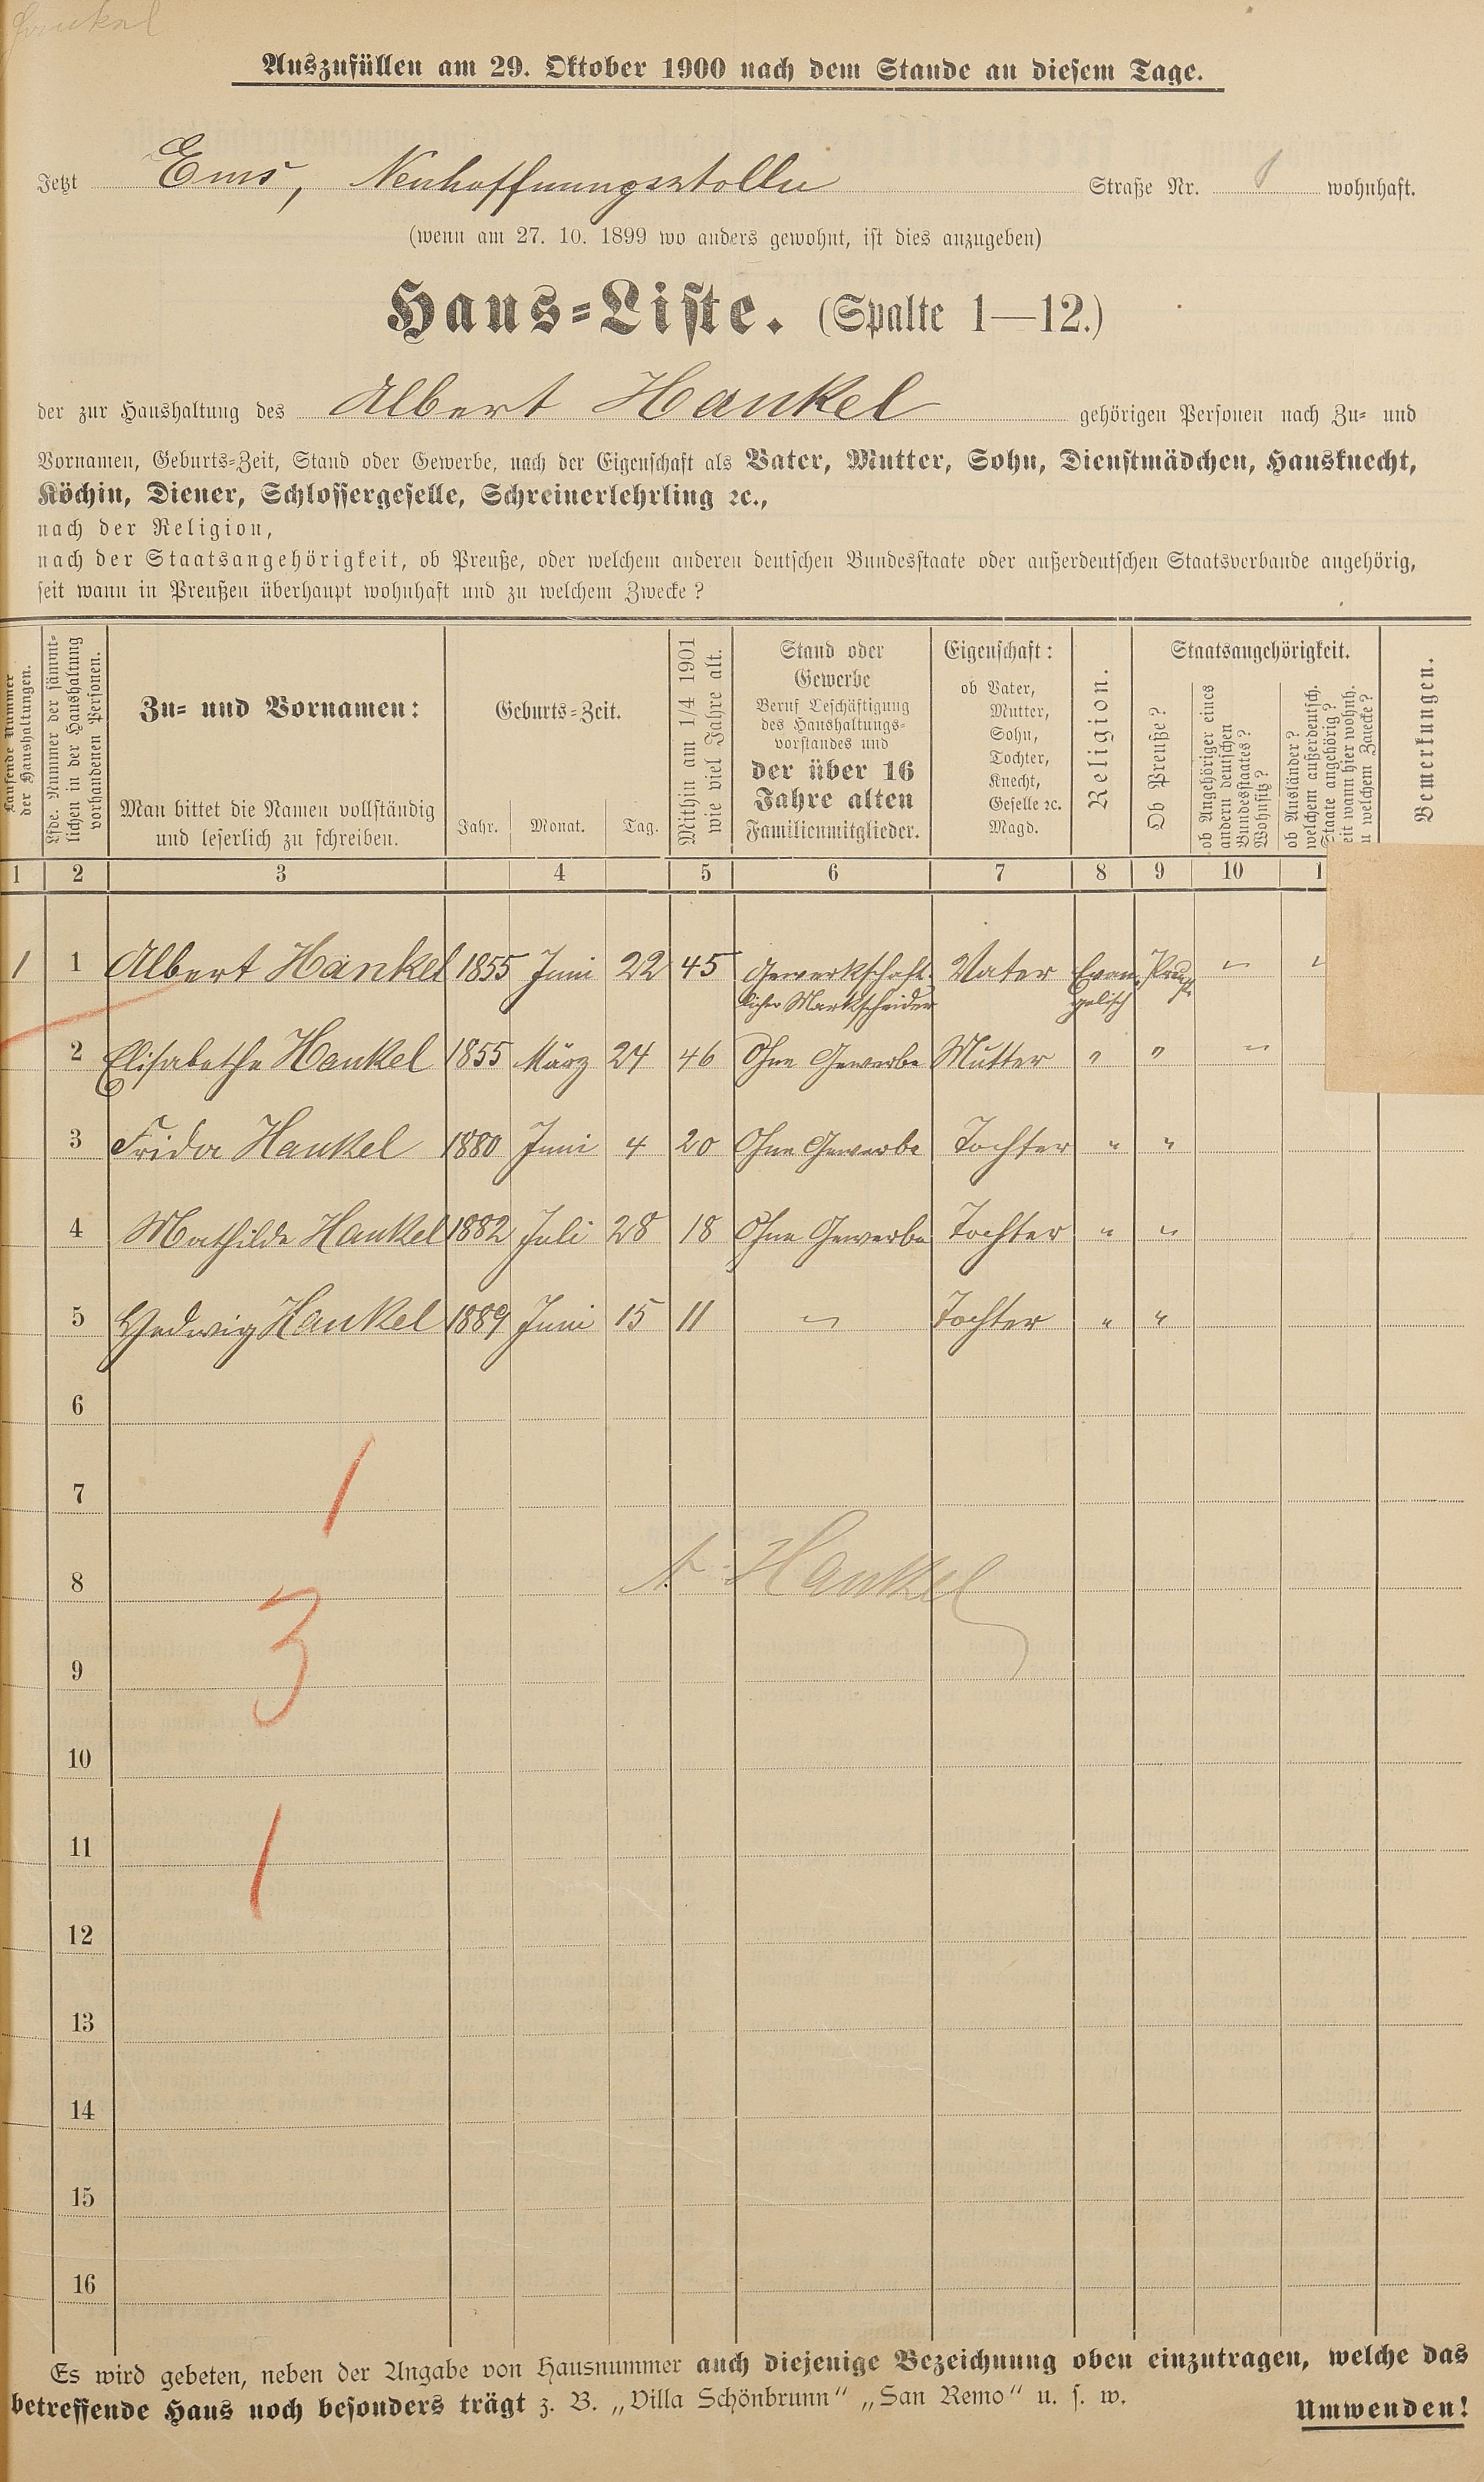 Hankel
Auszufüllen am 29. Oktober 1900 nach dem Stande an diesem Tage.
Jetzt Ems, Neuhoffnungsstolln Straße Nr. 1 wohnhaft.
(wenn am 27. 10. 1899 wo anders gewohnt, ist dies anzugeben)
Haus-Liste. (Spalte 1—12.)
der zur Haushaltung des Albert Hankel gehörigen Personen nach Zu- und
Vornamen, Geburts-Zeit, Stand oder Gewerbe, nach der Eigenschaft als Vater, Mutter, Sohn, Dienstmädchen, Hausknecht,
Köchin, Diener, Schlossergeselle, Schreinerlehrling ꝛc.,
nach der Religion,
nach der Staatsangehörigkeit, ob Preuße, oder welchem anderen deutschen Bundesstaate oder außerdeutschen Staatsverbande angehörig,
seit wann in Preußen überhaupt wohnhaft und zu welchem Zwecke?
Laufende Nummer
der Haushaltungen.
Lfde. Nummer der sämmt-
lichen in der Haushaltung
vorhandenen Personen.
Zu- und Vornamen:
Man bittet die Namen vollständig
und leserlich zu schreiben.
Geburts-Zeit.
Jahr. Monat. Tag.
Mithin am 1/4 1901
wie viel Jahre alt.
Stand oder
Gewerbe
Beruf Beschäftigung
des Haushaltungs-
vorstandes und
der über 16
Jahre alten
Familienmitglieder.
Eigenschaft:
ob Vater,
Mutter,
Sohn,
Tochter,
Knecht,
Geselle ꝛc.
Magd.
Religion.
Staatsangehörigkeit.
Ob Preuße?
ob Angehöriger eines
andern deutschen
Bundesstaates?
Wohnsitz?
ob Ausländer?
welchem außerdeutsch.
Staate angehörig?
eit wann hier wohnh.
u welchem Zwecke?
Bemerkungen.
1 2 3 4 5 6 7 8 9 10 1
1 1 Albert Hankel 1855 Juni 22 45 Gewerkschaft- Vater Evan- Preuße " "
licher Markscheider gelisch
2 Elisabethe Hankel 1855 März 24 46 Ohne Gewerbe Mutter " " "
3 Frida Hankel 1880 Juni 4 20 Ohne Gewerbe Tochter " "
4 Mathilde Hankel 1882 Juli 28 18 Ohne Gewerbe Tochter " "
5 Hedwig Hankel 1889 Juni 15 11 " Tochter " "
6
1
7
A. Hankel
8
3
9
10
1
11
12
13
14
15
16
Es wird gebeten, neben der Angabe von Hausnummer auch diejenige Bezeichnung oben einzutragen, welche das
betreffende Haus noch besonders trägt z. B. „Villa Schönbrunn“ „San Remo“ u. s. w.
Umwenden!